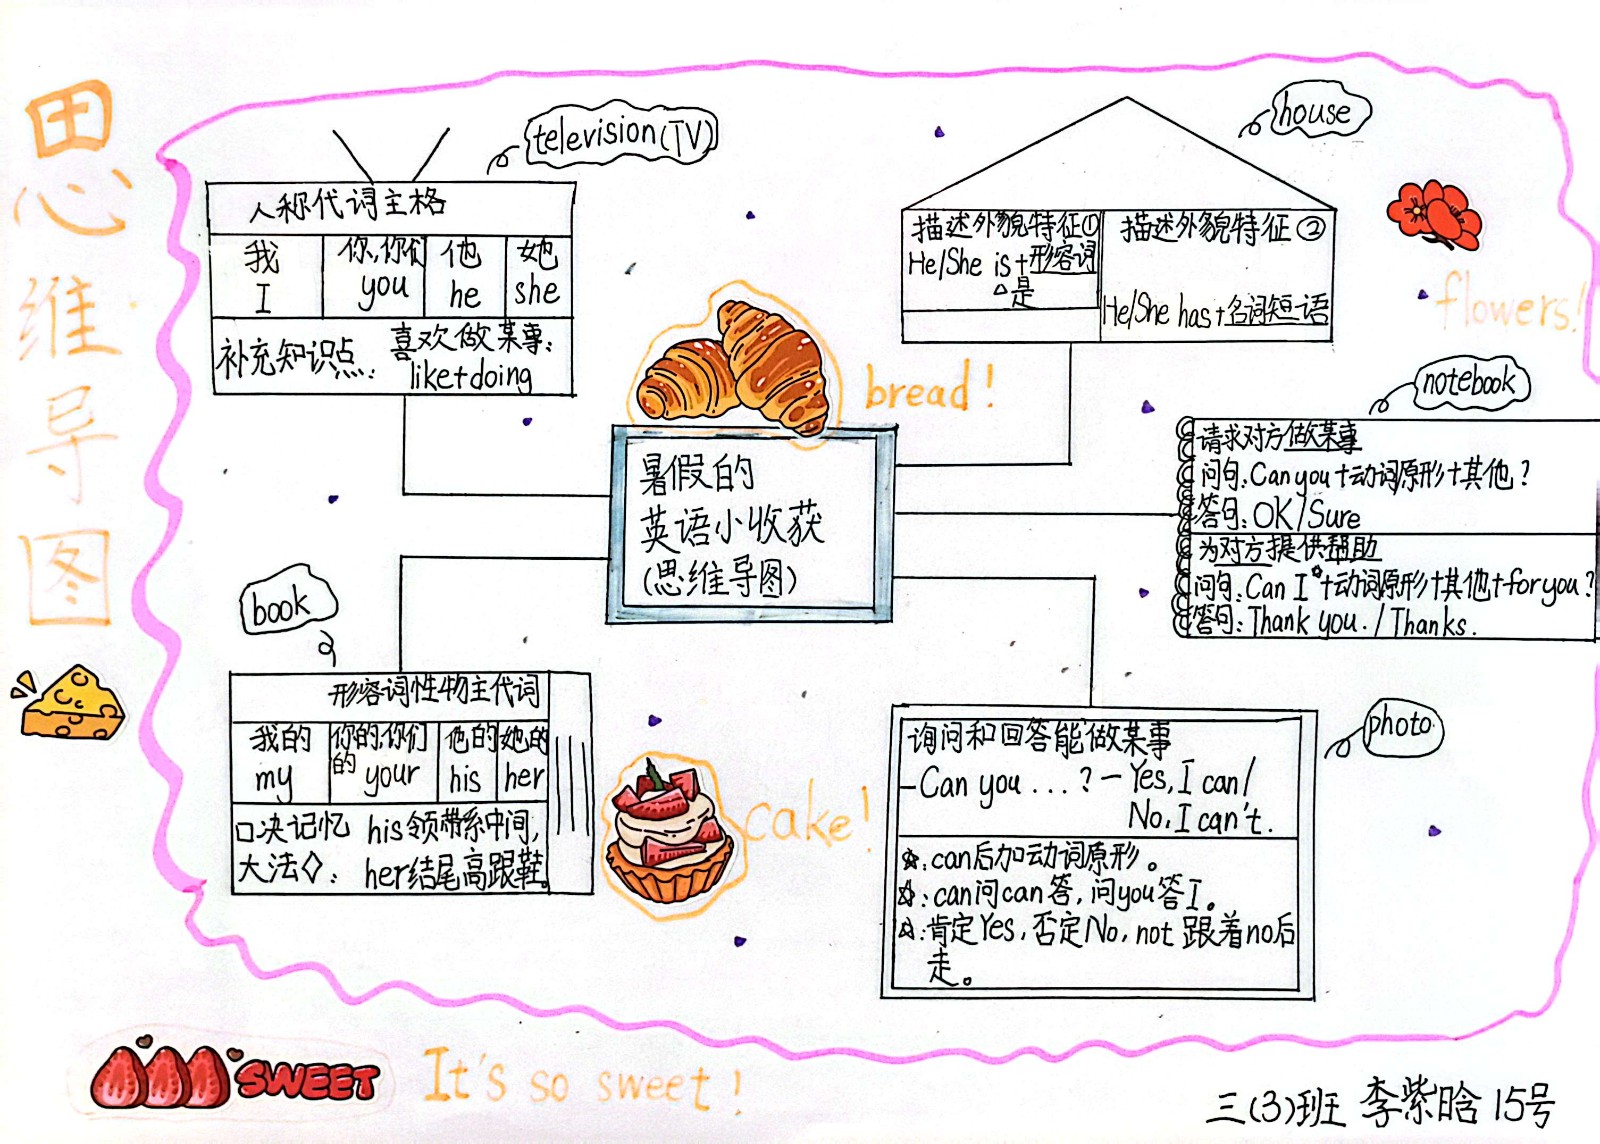 思维导图
television(TV)
人称代词主格
我 你,你们 他 她
I you he she
补充知识点: 喜欢做某事:
like+doing
house
描述外貌特征①
He/She is+形容词
△是
描述外貌特征②
He/She has+名词短语
flowers!
bread!
notebook
请求对方做某事
问句:Can you+动词原形+其他?
答句:OK/Sure
为对方提供帮助
问句:Can I+动词原形+其他+for you?
答句:Thank you./Thanks.
暑假的
英语小收获
(思维导图)
book
形容词性物主代词
我的 你的,你们的 他的 她的
my your his her
口决记忆 his领带系中间,
大法◇: her结尾高跟鞋。
cake!
photo
询问和回答能做某事
-Can you ...? -Yes,I can/
No,I can't.
☆:can后加动词原形。
☆:can问can答,问you答I。
☆:肯定Yes,否定No,not跟着no后
走。
SWEET
It's so sweet!
三(3)班 李紫晗 15号